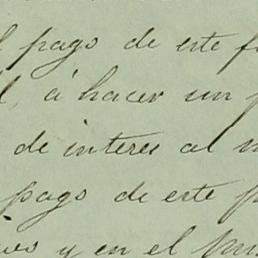 pago de este
á hacer un
de interes al
pago de este
y en el